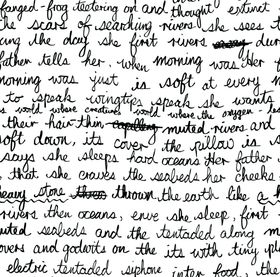 fanged-frog teetering on and thought extinct
the scars of searching rivers. she sees t
ing the day she first rivers day
father tells her. when morning was her f
morning was just is soft at every m
to speak. wingtips speak she wants
world where creatures would where the oxygen
their hair-thin muted rivers and
soft down, its cover the pillow is s
says she sleeps hard oceans her father
that she craves the seabeds her cheeks
heavy stone thrown the earth like a h
rivers then oceans, she sleep, first
uted seabeds and the tentacled along m
overs and godwits on the its with tiny ligh
electric tentacled siphone food, th